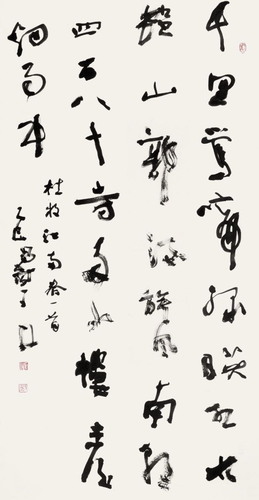 千里鶯啼綠映紅水
村山郭酒旗風南朝
四百八十寺多少樓臺
烟雨中
杜牧江南春一首
乙巳